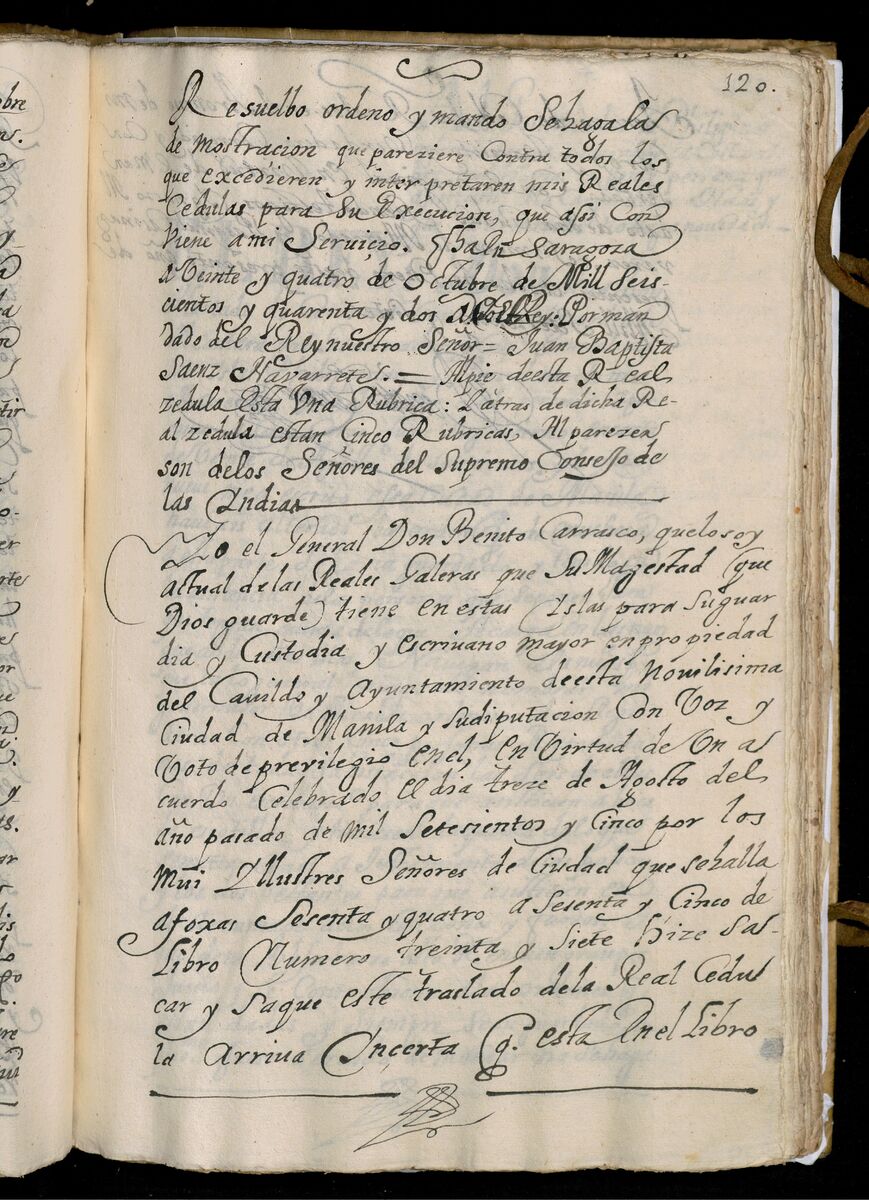 120.
Resuelbo ordeno y mando Sehagalas
de mostracion que pareziere Contra todos los
que excedieren y inter pretaren mis Reales
Cedulas para Su Execucion, que assi Con
Viene ami Servicio. fha En Saragoza
a Veinte y quatro de Octubre de Mill Seis-
cientos y quarenta y dos Rey: Por man
dado del Rey nuestro Señor = Juan Baptista
Saenz Navarrete. = Al pie deesta Real
zedula esta Vna Rubrica: Y atras de dicha Re-
al zedula estan Cinco Rubricas, Al parezer
son delos Señores del Supremo Consesso de
las Yndias
Yo el General Don Benito Carrasco, quelosoy
actual delas Reales Galeras que Su Magestad (que
Dios guarde) tiene en estas Yslas para Suguar
dia y Custodia y escrivano mayor en propiedad
del Cavildo y Ayuntamiento deesta Novilisima
Ciudad de Manila y sudiputacion Con Voz y
Voto de previlegio enel, en Virtud de Vn a
cuerdo Celebrado el dia treze de Agosto del
año pasado de mil Setesientos y Cinco por los
mui Yllustres Señores de Ciudad que sehalla
afoxas Sesenta y quatro a sesenta y Cinco de
Libro Numero treinta y siete hize Sa-
car y saque este traslado dela Real Cedu
la arriva Yncerta q. esta Enel Libro